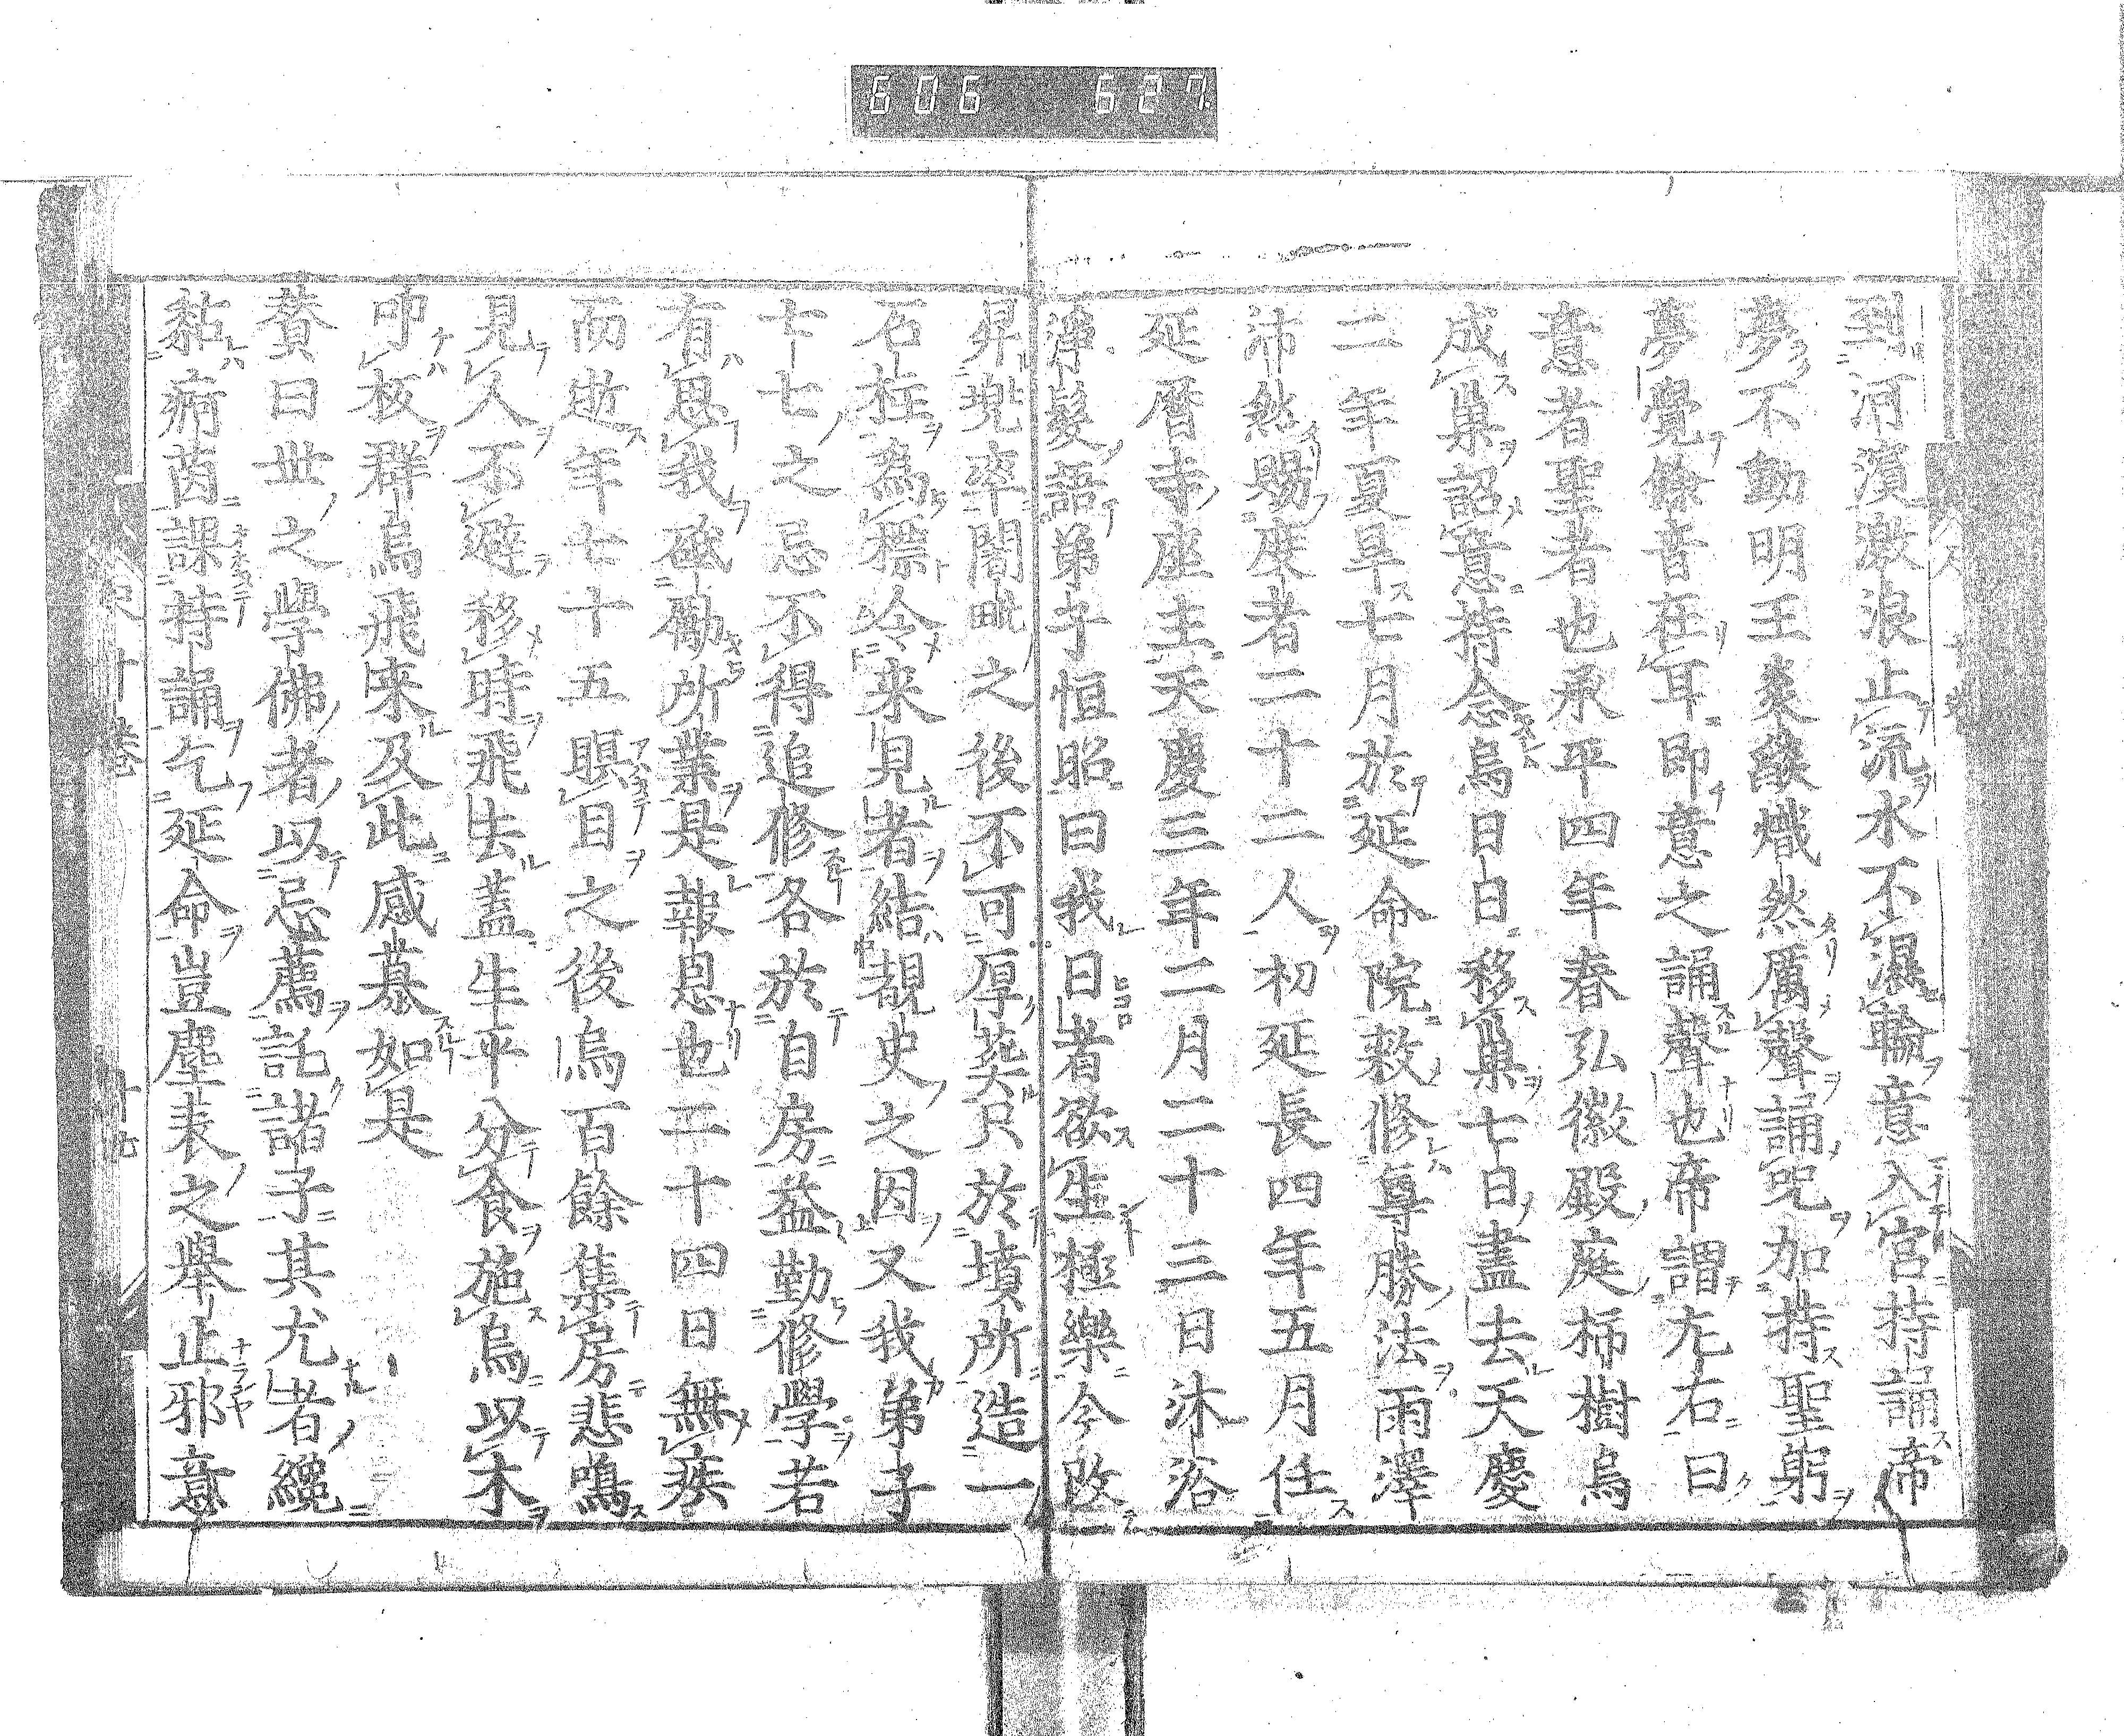 606 627
到河濱激浪止流水不濕輪意入宮持誦帝
夢不動明王炎𦦨熾然厲聲誦咒加持聖躬
夢覺餘音在耳即意之誦聲也帝謂左右曰
意者聖者也承平四年春弘徽殿庭柿樹烏
成巢詔意持念烏日日移巢七日盡去天慶
二年夏旱七月於延命院敕修尊勝法雨澤
沛然賜度者二十二人初延長四年五月任
延曆寺座主天慶三年二月二十三日沐浴
淨髮語弟子恒昭曰我日者欲生極樂今改
昇兜率闍毗之後不可厚葬只於墳所造一
石柱為標令来見者結覩史之因又我弟子
七七之忌不得追修各於自房益勤修學若
有思我砥勵所業是報恩也二十四日無疾
而逝年七十五瞑目之後烏百餘集房悲鳴
見人不避移時飛去蓋生平分食施烏以木
叩板群烏飛来及此感慕如是
贊曰世之學佛者以忌薦託諸子其尤者纔
黏病茵課持誦乞延命豈塵表之舉止邪意